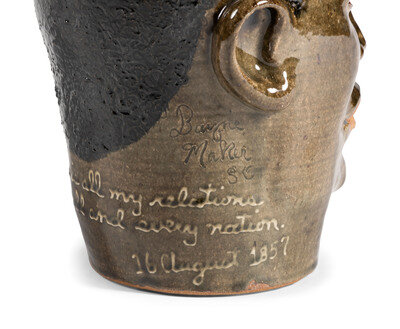 P Bayne
Maker
SC
all my relations
all and every nation.
16 August 1857